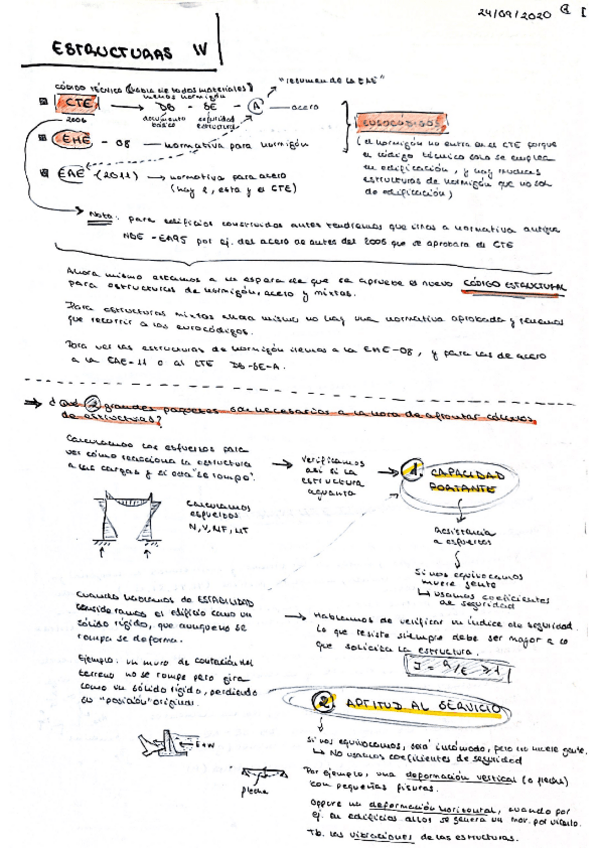 24/09/2020
1
ESTRUCTURAS IV
CÓDIGO TÉCNICO (habla de todos materiales)
menos hormigón
"resumen de la EAE"
CTE → DB - SE - A — acero
2006
documento básico
seguridad estructural
EUROCÓDIGOS
(el hormigón no entra en el CTE porque
el código técnico solo se emplea
en edificación, y hay muchas
estructuras de hormigón que no son
de edificación)
EHE - 08 — normativa para hormigón
EAE (2011) → normativa para acero
(hay 2, esta y el CTE)
Nota: para edificios construidos antes tendríamos que irnos a normativa antigua
NBE - EA95 por ej. del acero de antes del 2006 que se aprobara el CTE
Ahora mismo estamos a la espera de que se apruebe el nuevo CÓDIGO ESTRUCTURAL
para estructuras de hormigón, acero y mixtas.
Para estructuras mixtas ahora mismo no hay una normativa aprobada y tenemos
que recurrir a los eurocódigos.
Para ver las estructuras de hormigón iremos a la EHE-08, y para las de acero
a la EAE-11 o al CTE DB-SE-A.
→ ¿Qué 2 grandes paquetes son necesarios a la hora de afrontar cálculos
de estructuras?
Calculamos los esfuerzos para
ver cómo reacciona la estructura
a las cargas y si está "se rompe".
→ Verificamos
así si la
estructura
aguanta
→ 1. CAPACIDAD
PORTANTE
Calculamos
esfuerzos
N, V, MF, MT
Resistencia
a esfuerzos
Si nos equivocamos
muere gente
↳ usamos coeficientes
de seguridad
Cuando hablamos de ESTABILIDAD
consideramos el edificio como un
sólido rígido, que aunque no se
rompa se deforma.
→ Hablamos de verificar un índice de seguridad.
Lo que resiste siempre debe ser mayor a lo
que solicita la estructura.
Ejemplo: un muro de contención del
terreno no se rompe pero gira
como un sólido rígido, perdiendo
su "posición" original.
2. APTITUD AL SERVICIO
Si nos equivocamos, será incómodo, pero no muere gente.
↳ No usamos coeficientes de seguridad
flecha
Por ejemplo, una deformación vertical (o flecha)
con pequeñas fisuras.
O por ej. una deformación horizontal, cuando por
ej. en edificios altos se genera un mov. por viento.
Tb. las vibraciones de las estructuras.